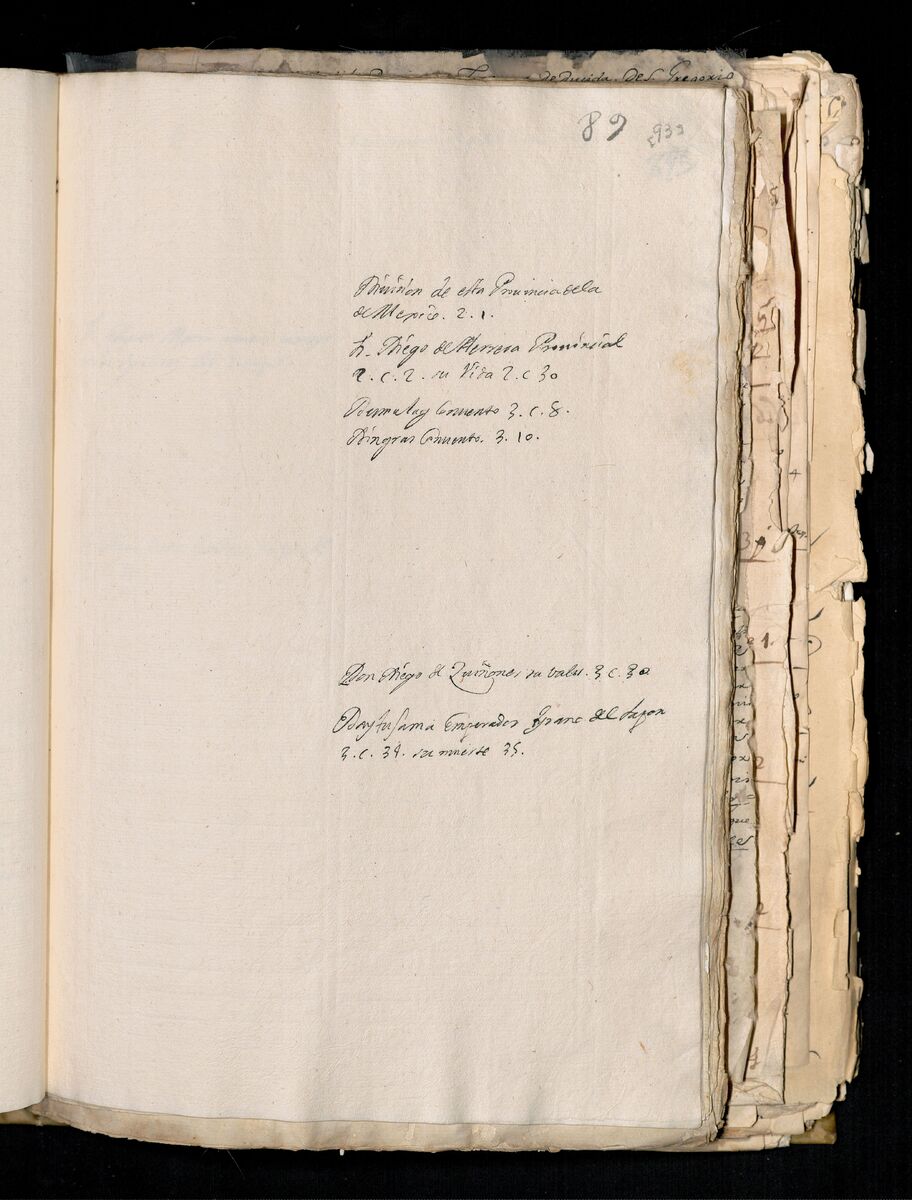 de S. Gregorio
89
939
Diuision de esta Prouincia de la
de Mexico. 2. 1.
F. Diego de Herrera Prouinsial
2. c. 2. su Vida 2. c 30
Conuento 3. c. 8.
Dingras Conuento. 3. 10.
Don Diego de Quiñones su valor. 3 c. 30
Dayfusama Emperador Tyrano del Iapon
3. c. 34. su muerte 35.